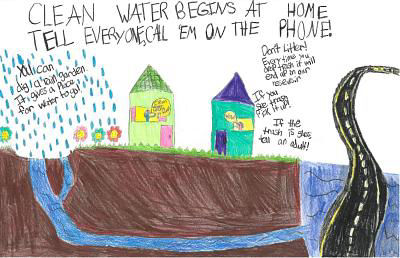 CLEAN WATER BEGINS AT HOME
TELL EVERYONE, CALL 'EM ON THE PHONE!
You can
dig a rain garden
It gives a place
for water to go!
Don't Litter!
Everytime you
drop trash it will
end up in our
If you
see trash
Pick it up!
If the
trash is glass,
tell an adult!